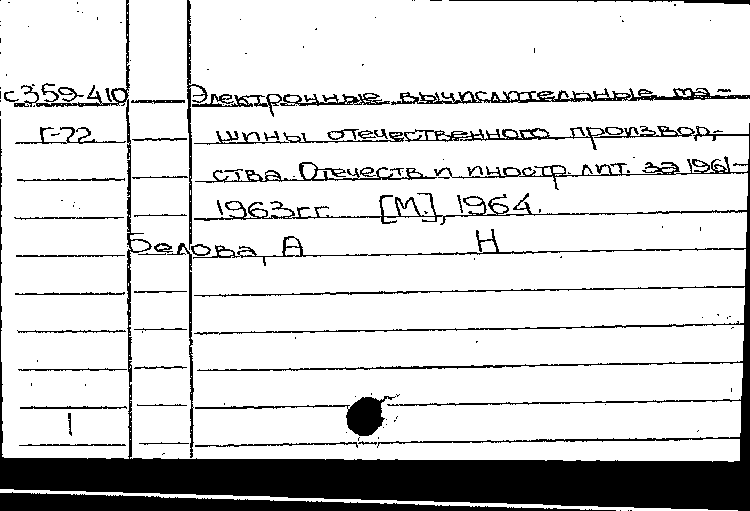 с359-410 Электронные вычислительные ма-
Г-72 шины отечественного производ-
ства. Отечеств и иностр. лит. за 1961-
1963гг. [М.], 1964.
Белова, А Н
1